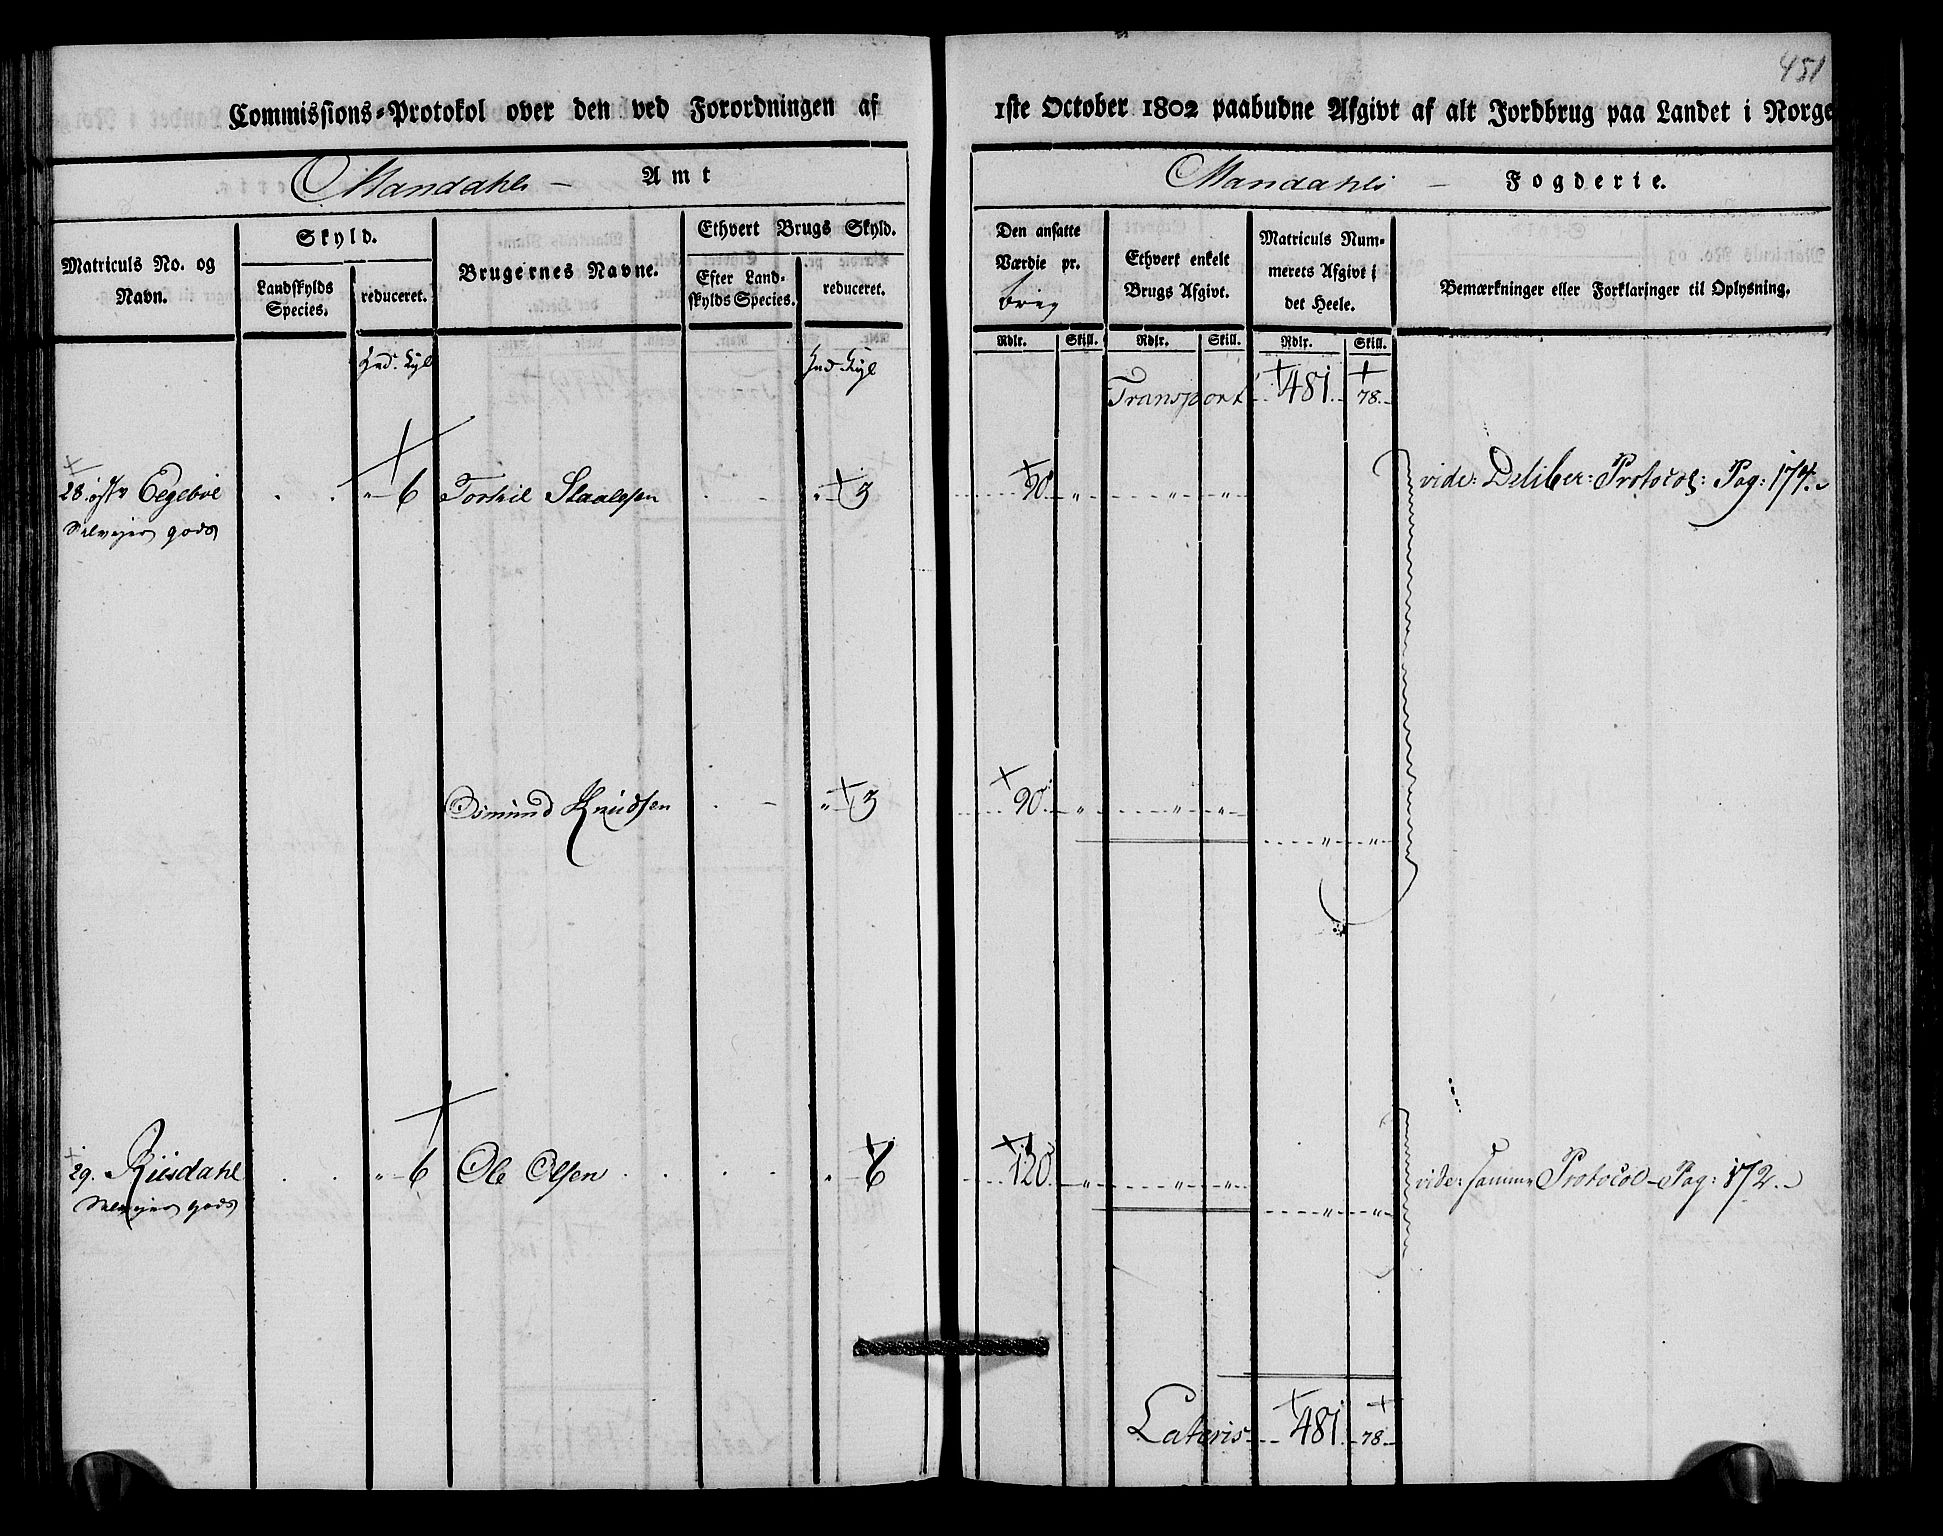 451
Commissions-Protokol over den ved Forordningen af 1ste October 1802 paabudne Afgivt af alt Jordbrug paa Landet i Norge
Mandahls – Amt
Mandahls – Fogderie.
Matriculs No. og Navn.
Skyld.
Landskylds Species.
reduceret.
Brugernes Navne.
Ethvert Brugs Skyld.
Efter Landskylds Species.
reduceret.
Den ansatte Værdie pr.
Ethvert enkelt Brugs Afgivt.
Matriculs Nummerets Afgivt i det Heele.
Bemærkninger eller Forklaringer til Oplysning.
Rdlr. Skill. Rdlr. Skill. Rdlr. Skill.
Transport 481. 78.
28. Eegeboe " 6 Torkil Staalesen " 3 90 " " " vide: Deliber: Protocol: Pag: 174.
Selvejer gods
Osmund Knudsen " 3 90 " " "
" "
29. Riisdahl " 6 Ole Olsen " 6 120. " " " vide: samme Protocol – Pag: 172.
Selvejer gods " "
Lateris 481. 78